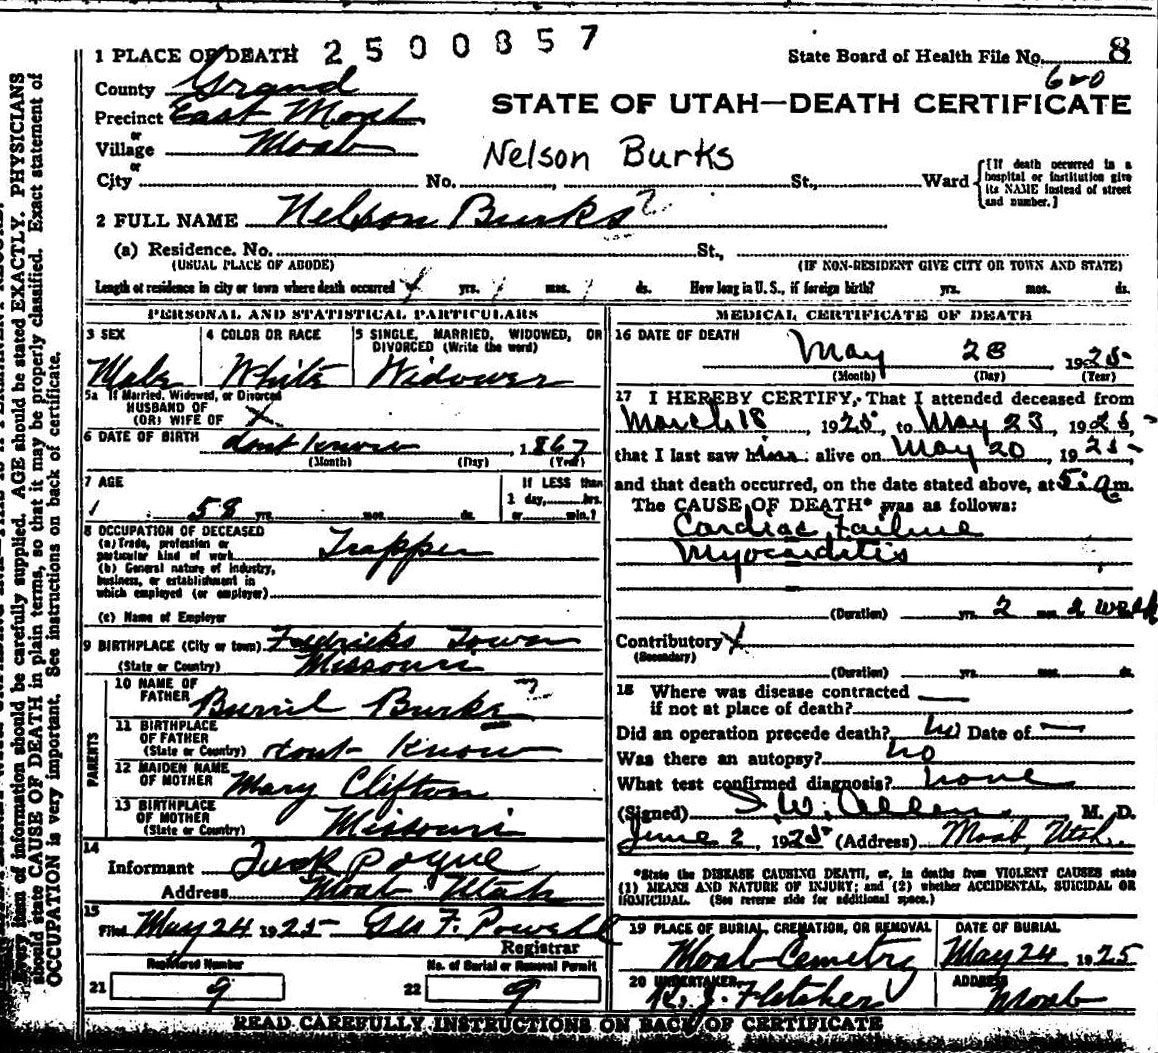 1 PLACE OF DEATH 2500857 State Board of Health File No. 8
620
County Grand
STATE OF UTAH—DEATH CERTIFICATE
Precinct East Moab
or
Village Moab
Nelson Burks
or
City No. , St., Ward
[If death occurred in a hospital or institution give its NAME instead of street and number.]
2 FULL NAME Nelson Burks ?
(a) Residence. No. St.,
(USUAL PLACE OF ABODE) (IF NON-RESIDENT GIVE CITY OR TOWN AND STATE)
Length of residence in city or town where death occurred yrs. mos. ds. How long in U. S., if foreign birth? yrs. mos. ds.
PERSONAL AND STATISTICAL PARTICULARS
3 SEX 4 COLOR OR RACE 5 SINGLE, MARRIED, WIDOWED, OR
DIVORCED (Write the word)
Male White Widower
5a If Married, Widowed, or Divorced
HUSBAND OF
(OR) WIFE OF X
6 DATE OF BIRTH dont know , 1867
(Month) (Day) (Year)
7 AGE If LESS than
1 day, hrs.
58 yrs. mos. ds. or min.?
8 OCCUPATION OF DECEASED
(a) Trade, profession or
particular kind of work Trapper
(b) General nature of industry,
business, or establishment in
which employed (or employer)
(c) Name of Employer
9 BIRTHPLACE (City or town) Fedricks Town
(State or Country) Missouri
PARENTS
10 NAME OF
FATHER Burril Burks ?
11 BIRTHPLACE
OF FATHER
(State or Country) dont know
12 MAIDEN NAME
OF MOTHER Mary Clifton
13 BIRTHPLACE
OF MOTHER
(State or Country) Missouri
14
Informant Tuck Pogue
Address Moab Utah
15
Filed May 24 1925 Geo F. Powell
Registrar
Registered Number No. of Burial or Removal Permit
21 9 22 9
MEDICAL CERTIFICATE OF DEATH
16 DATE OF DEATH
May 23 1925
(Month) (Day) (Year)
17 I HEREBY CERTIFY, That I attended deceased from
March 18, 1925, to May 23, 1925,
that I last saw him alive on May 20, 1925
and that death occurred, on the date stated above, at 5: a.m.
The CAUSE OF DEATH* was as follows:
Cardiac Failure
Myocarditis
(Duration) yrs. 2 mos. 2 week
Contributory X
(Secondary)
(Duration) yrs. mos. ds.
18 Where was disease contracted
if not at place of death?
Did an operation precede death? no Date of —
Was there an autopsy? no
What test confirmed diagnosis? none
(Signed) I. W. Allen M. D.
June 2, 1925 (Address) Moab, Utah
*State the DISEASE CAUSING DEATH, or, in deaths from VIOLENT CAUSES state
(1) MEANS AND NATURE OF INJURY; and (2) whether ACCIDENTAL, SUICIDAL OR
HOMICIDAL. (See reverse side for additional space.)
19 PLACE OF BURIAL, CREMATION, OR REMOVAL DATE OF BURIAL
Moab Cemetry May 24 1925
20 UNDERTAKER ADDRESS
R. J. Fletcher Moab
READ CAREFULLY INSTRUCTIONS ON BACK OF CERTIFICATE
Every item of information should be carefully supplied. AGE should be stated EXACTLY. PHYSICIANS
should state CAUSE OF DEATH in plain terms, so that it may be properly classified. Exact statement of
OCCUPATION is very important. See instructions on back of certificate.